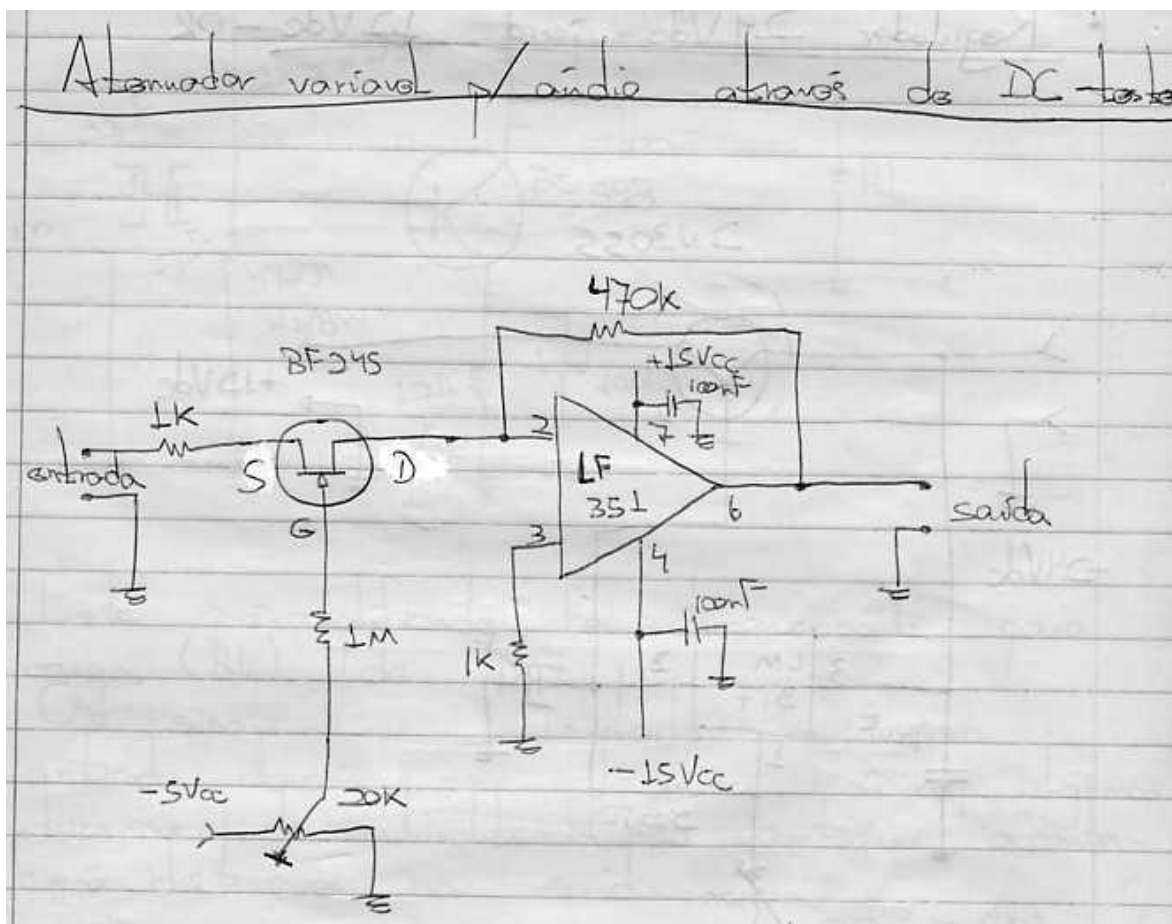 Atenuador variavel p/ aúdio através de DC-teste
470K
BF245
+15Vcc
100nF
1K
2
7
entrada
S
D
LF
351
6
saída
G
3
4
100nF
1M
1K
-15Vcc
-5Vcc
20K